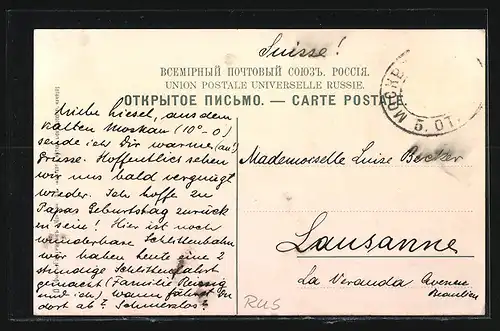 Suisse!
ВСЕМІРНЫЙ ПОЧТОВЫЙ СОЮЗЪ. РОССІЯ.
UNION POSTALE UNIVERSELLE RUSSIE.
ОТКРЫТОЕ ПИСЬМО. — CARTE POSTALE.
МОСКВ
5. 01.
Liebe Liesel, aus dem
kalten Moskau (10°-0)
sende ich Dir warme
Grüsse. Hoffentlich sehen
wir uns bald vergnügt
wieder. Ich hoffe zu
Papas Geburtstag zurück
zu sein! Hier ist noch
wunderbare Schlittenbahn
wir haben heute eine 2
stündige Schlittenfahrt
gemacht (Familie
und ich) wann fährst Du
dort ab? Schmerzlos?
Mademoiselle Luise Becker
Lausanne
La Veranda Avenue
Beaulieu
RUS